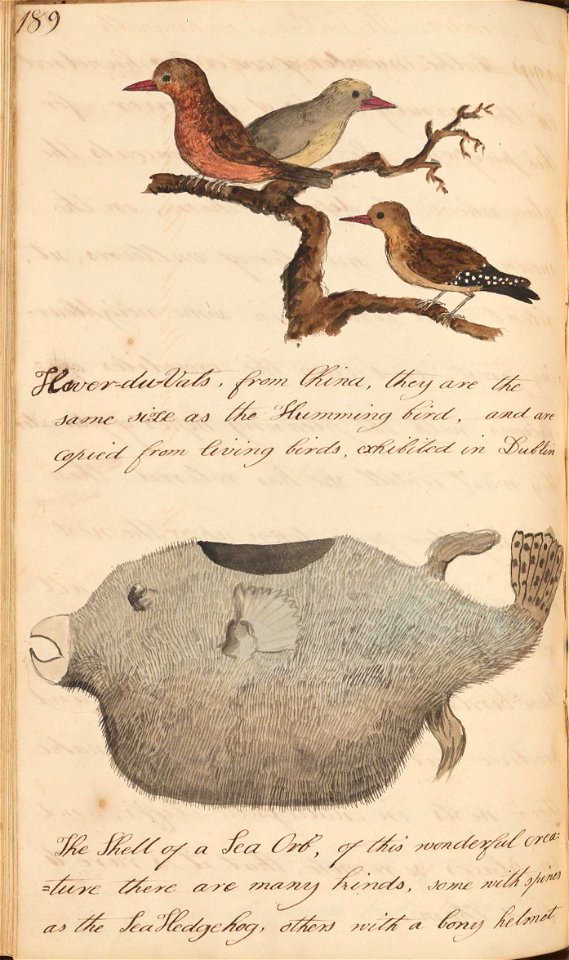 189
Hover-du-Vats, from China, they are the
same size as the Humming bird, and are
copied from living birds, exhibited in Dublin
The Shell of a Sea Orb, of this wonderful crea-
=ture there are many kinds, some with spines
as the Sea Hedgehog, others with a bony helmet